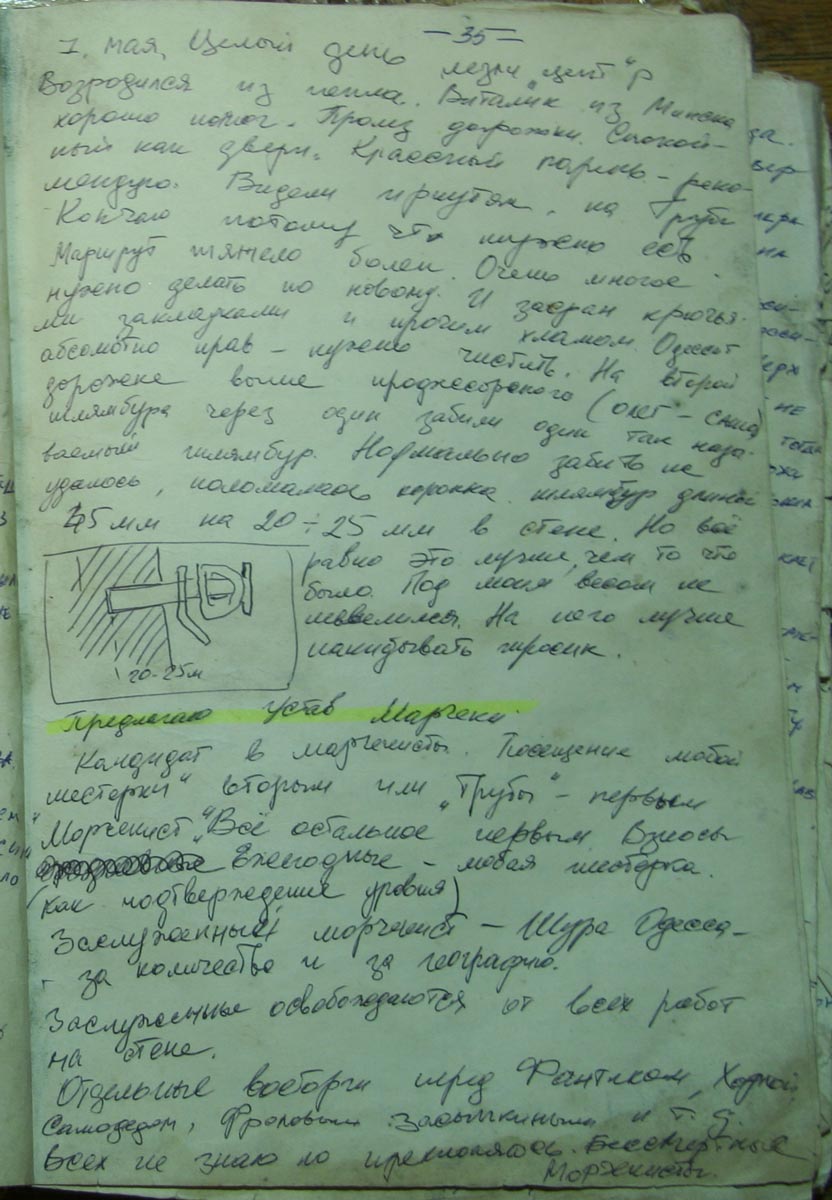 — 35 —
1. мая, Целый день лезли центр
Возродился из пепла. Виталик из Минска
хорошо помог. Пролез дорожки. Спокой-
ный как дверь. Классный парень – реко-
мендую. Видели иркутян, на Трубе
Кончаю потому что нужно
Маршрут тяжело болен. Очень многое
нужно делать по новому. И засран крючья-
ми закладками и прочим хламом. Одессит
абсолютно прав – нужно чистить. На второй
дорожке выше (Олег – Саша)
шлямбура через один забили один так назы-
ваемый шлямбур. Нормально забить не
удалось, поломалась коронка. шлямбур длиной
45 мм на 20 ÷ 25 мм в стене. Но всё
равно это лучше, чем то что
было. Под моим весом не
шевелился. На него лучше
накидывать тросик.
20-25м
Предлагаю Устав Марчеки
Кандидат в марчекисты. Посещение любой
"шестерки" вторым или "Трубы" – первым
"Морчекист" Всё остальное первым Взносы
Ежегодные – любая шестерка.
(как подтверждение уровня)
Заслуженный морчекист – Шура Одесса –
– за количество и за географию.
Заслуженные освобождаются от всех работ
на стене.
Отдельные восторги перед Фантиком, Хадкой
Самодедом, Фроловым Засыпкиным и т. д.
Всех не знаю но преклоняюсь. Бессмертные
Морчекисты.